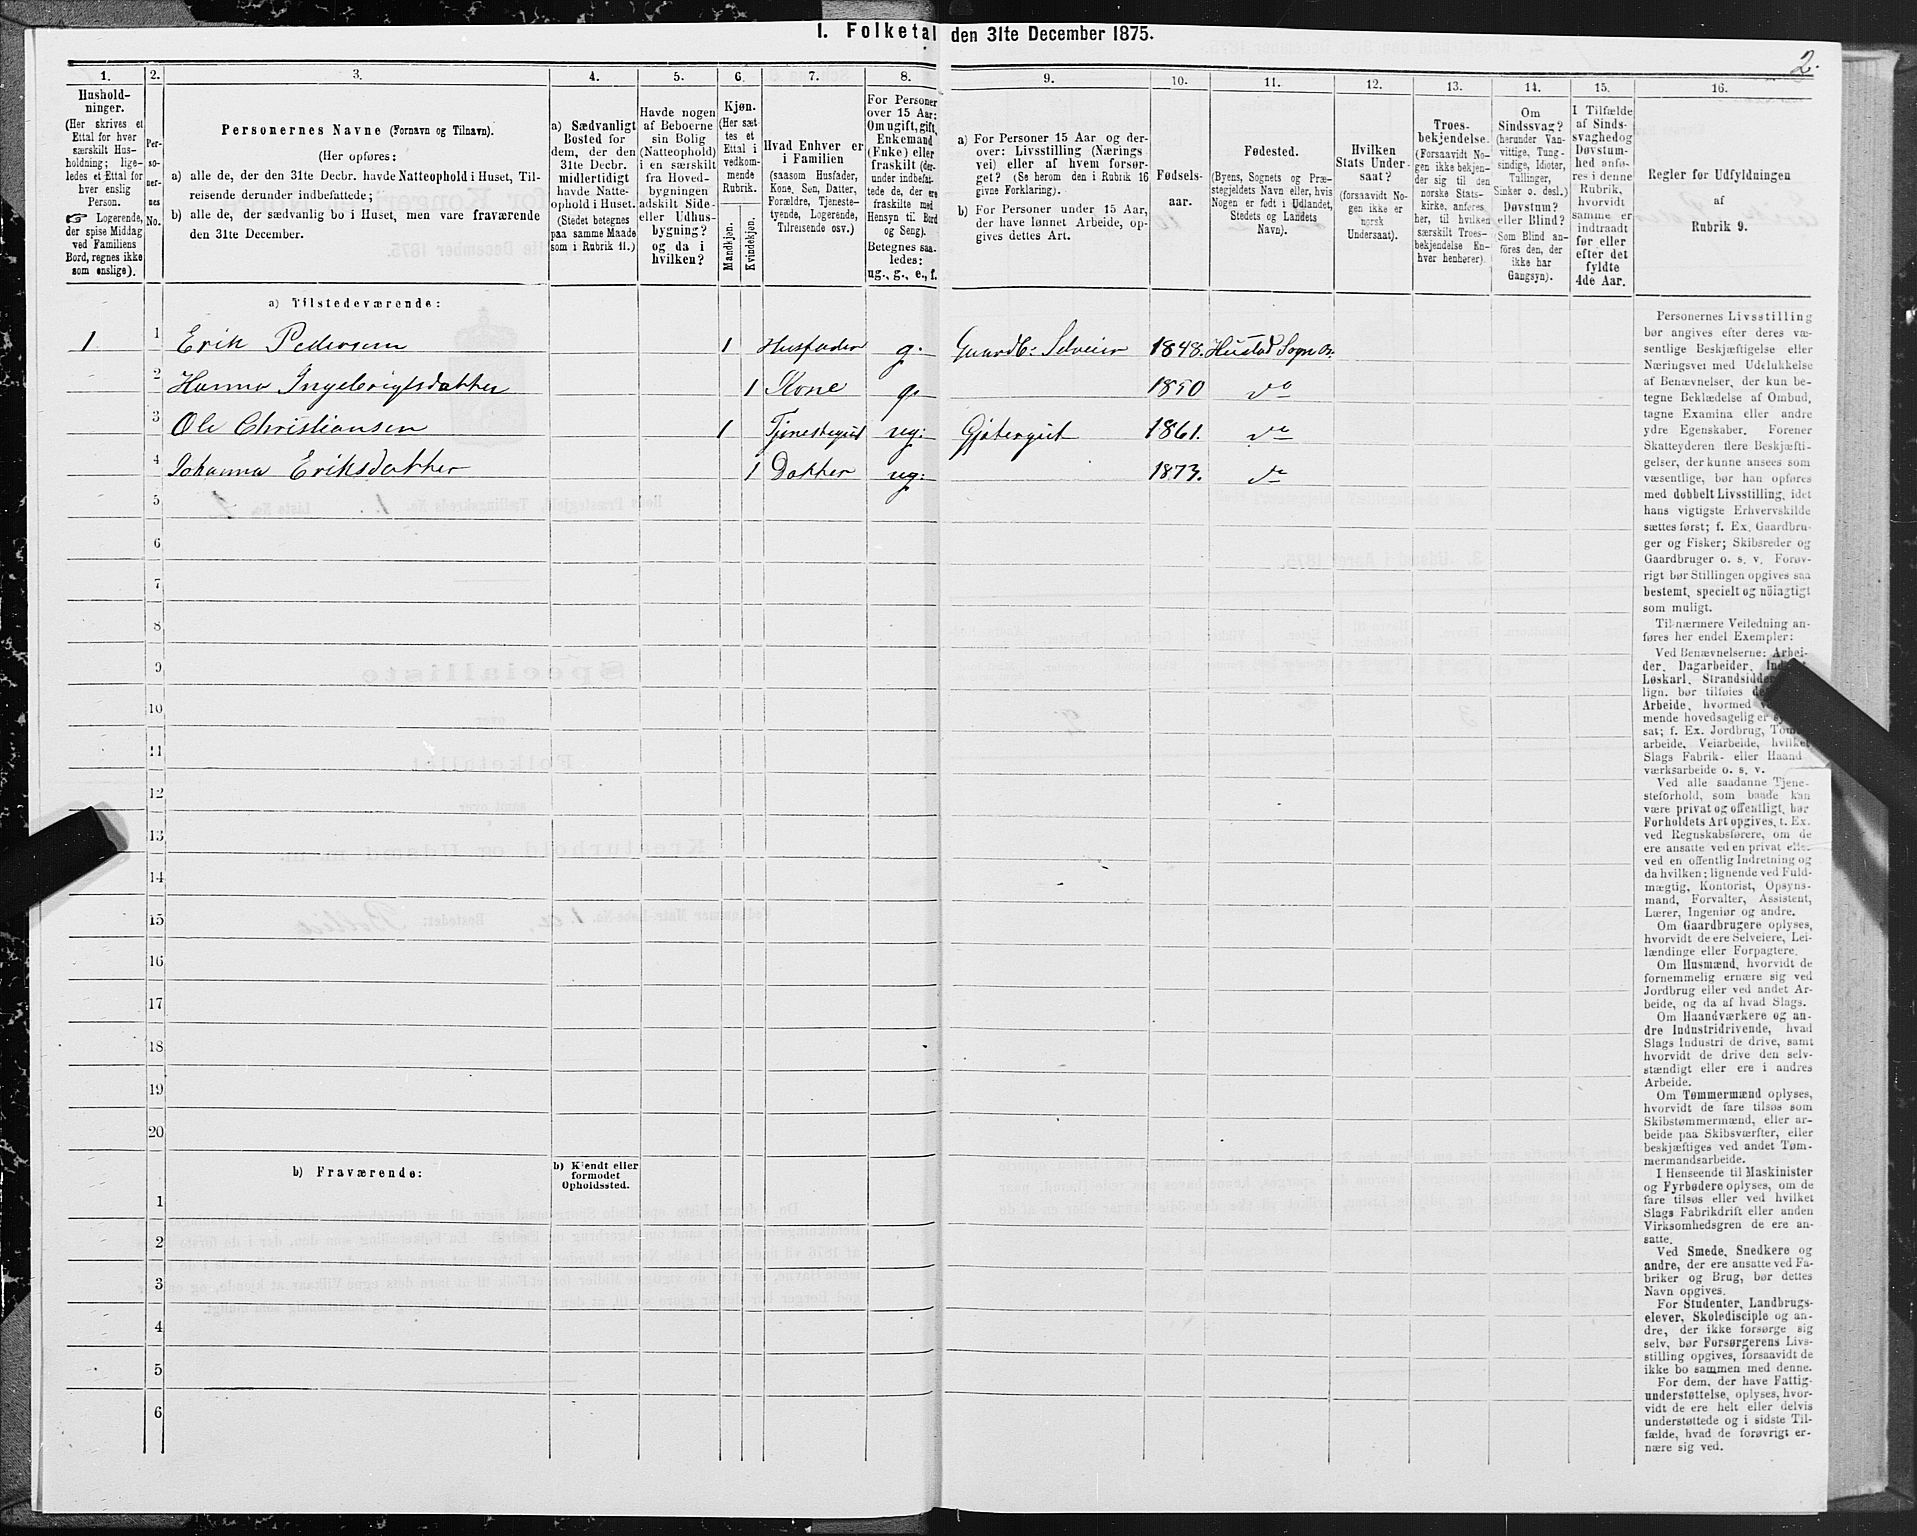 I. Folketal den 31te December 1875.
2.
1.
2.
3.
4.
5.
6.
7.
8.
9.
10.
11.
12.
13.
14.
15.
16.
Hushold-
ninger.
(Her skrives et
Ettal for hver
særskilt Hus-
holdning; lige-
ledes et Ettal for
hver enslig
Person.
Logerende,
der spise Middag
ved Familiens
Bord, regnes ikke
som enslige).
Per-
so-
ner-
nes
No.
Personernes Navne (Fornavn og Tilnavn).
(Her opføres:
a) alle de, der den 31te Decbr. havde Natteophold i Huset, Til-
reisende derunder indbefattede;
b) alle de, der sædvanlig bo i Huset, men vare fraværende
den 31te December.
a) Sædvanligt
Bosted for
dem, der den
31te Decbr.
midlertidigt
havde Natte-
ophold i Huset.
(Stedet betegnes
paa samme Maade
som i Rubrik 11.)
Havde nogen
af Beboerne
sin Bolig
(Natteophold)
i en særskilt
fra Hoved-
bygningen
adskilt Side-
eller Udhus-
bygning?
og da i
hvilken?
Kjøn.
(Her sæt-
tes et
Ettal i
vedkom-
mende
Rubrik.
Mandkjøn.
Kvindekjøn.
Hvad Enhver er
i Familien
(saasom Husfader,
Kone, Søn, Datter,
Forældre, Tjeneste-
tyende, Logerende,
Tilreisende osv.)
For Personer
over 15 Aar:
Om ugift, gift,
Enkemand
(Enke) eller
fraskilt (der-
under indbefat-
tede de, der ere
fraskilte med
Hensyn til Bord
og Seng).
Betegnes saa-
ledes:
ug., g., e., f.
a) For Personer 15 Aar og der-
over: Livsstilling (Nærings
vei) eller af hvem forsør-
get? (Se herom den i Rubrik 16
givne Forklaring).
b) For Personer under 15 Aar,
der have lønnet Arbeide, op-
gives dettes Art.
Fødsels-
aar.
Fødested.
(Byens, Sognets og Præ-
stegjeldets Navn eller, hvis
Nogen er født i Udlandet,
Stedets og Landets
Navn).
Hvilken
Stats Under-
saat?
(forsaavidt No-
gen ikke er
norsk
Undersaat).
Troes-
bekjendelse.
(Forsaavidt No-
gen ikke bekjen-
der sig til den
norske Stats-
kirke, anføres
her, til hvilken
særskilt Troes-
bekjendelse En-
hver henhører).
Om
Sindssvag?
(herunder Van-
vittige, Tung-
sindige, Idioter,
Tullinger,
Sinker o. desl.)
Døvstum?
eller Blind?
Som Blind an-
føres den, der
ikke har
Gangsyn).
I Tilfælde
af Sinds-
svaghed og
Døvstum-
hed anfø-
res i denne
Rubrik,
hvorvidt
samme er
indtraadt
før eller
efter det
fyldte
4de Aar.
Regler for Udfyldningen
af
Rubrik 9.
a) Tilstedeværende:
1 1 Erik Pedersen 1 Husfader g. Gaardb: Selveier 1848. Hustad Sogn
2 Hanna Ingebrigtsdatter 1 Kone g. 1850 do
3 Ole Christiansen 1 Tjenestegut ug: Gjætergut 1861. do
4 Johanna Eriksdatter 1 Datter ug: 1873. do
5
6
7
8
9
10
11
12
13
14
15
16
17
18
19
20
b) Fraværende:
b) Kjendt eller
formodet
Opholdssted.
1
2
3
4
5
6
Personernes Livsstilling
bør angives efter deres væ-
sentlige Beskjæftigelse eller
Næringsvei med Udelukkelse
af Benævnelser, der kun be-
tegne Beklædelse af Ombud,
tagne Examina eller andre
ydre Egenskaber. Forener
Skatteyderen flere Beskjæfti-
gelser, der kunne ansees som
væsentlige, bør han opføres
med dobbelt Livsstilling, idet
hans vigtigste Erhvervskilde
sættes først; f. Ex. Gaardbru-
ger og Fisker; Skibsreder og
Gaardbruger o. s. v. Forøv-
rigt bør Stillingen opgives saa
bestemt, specielt og nöiagtigt
som muligt.
Til nærmere Veiledning an-
føres her endel Exempler:
Ved Benævnelserne: Arbei-
der, Dagarbeider,
Løskarl, Strandsidder
lign. bør tilføies
Arbeide, hvormed
mende hovedsagelig er
sat; f. Ex. Jordbrug,
arbeide, Veiarbeide, hvilket
Slags Fabrik- eller Haand
værksarbeide o. s. v.
Ved alle saadanne Tjene-
steforhold, som baade kan
være privat og offentligt, bør
Forholdets Art opgives, t. Ex.
ved Regnskabsførere, om de
ere ansatte ved en privat eller
ved en offentlig Indretning og
da hvilken; lignende ved Fuld-
mægtig, Kontorist, Opsyns-
mand, Forvalter, Assistent,
Lærer, Ingeniør og andre.
Om Gaardbrugere oplyses,
hvorvidt de ere Selveiere, Lei-
lændinge eller Forpagtere.
Om Husmænd, hvorvidt de
fornemmelig ernære sig ved
Jordbrug eller ved andet Ar-
beide, og da af hvad Slags.
Om Haandværkere og an-
dre Industridrivende, hvad
Slags Industri de drive, samt
hvorvidt de drive den selv-
stændigt eller ere i andres
Arbeide.
Om Tømmermænd oplyses,
hvorvidt de fare tilsøs som
Skibstømmermænd, eller ar-
beide paa Skibsværfter, eller
beskjæftiges ved andet Tøm-
mermandsarbeide.
I Henseende til Maskinister
og Fyrbødere oplyses, om de
fare tilsøs eller ved hvilket
Slags Fabrikdrift eller anden
Virksomhedsgren de ere an-
satte.
Ved Smede, Snedkere og
andre, der ere ansatte ved Fa-
briker og Brug, bør dettes
Navn opgives.
For Studenter, Landbrugs-
elever, Skoledisciple og an-
dre, der ikke forsørge sig
selv, bør Forsørgerens Livs-
stilling opgives, forsaavidt de
ikke bo sammen med denne.
For dem, der have Fattig-
understøttelse, oplyses, hvor-
vidt de ere helt eller delvis
understøttede og i sidste Til-
fælde, hvad de forøvrigt er-
nære sig ved.